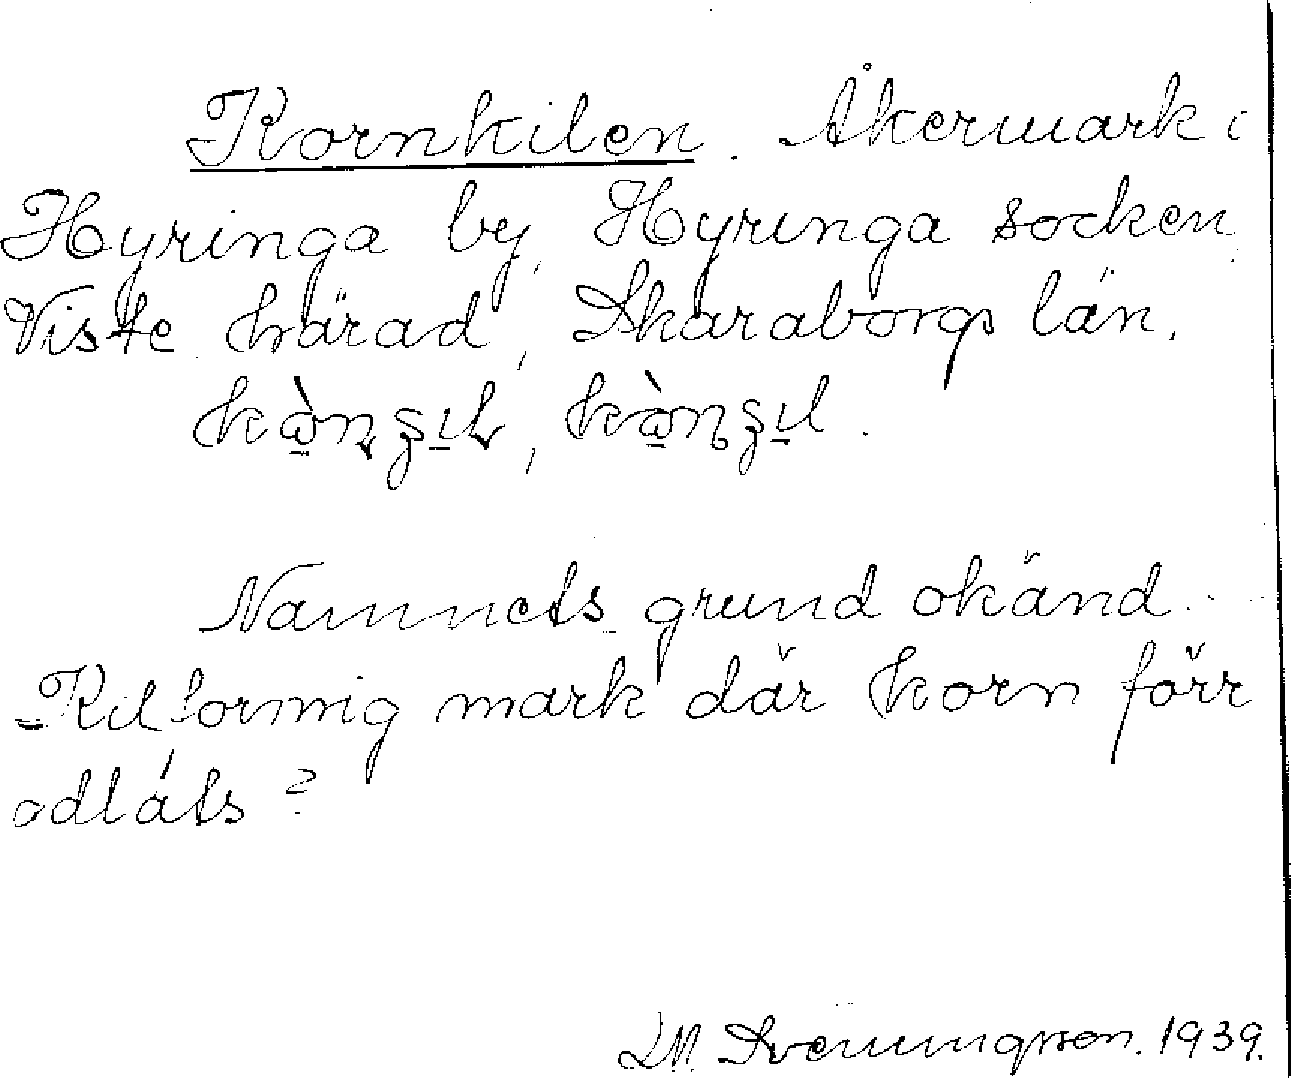 Kornkilen. Åkermark i
Hyringa by, Hyringa socken,
Viste härad, Skaraborgs län.
Namnets grund okänd.
Kilformig mark där korn förr
odlats?
L M. Svenungsson. 1939.